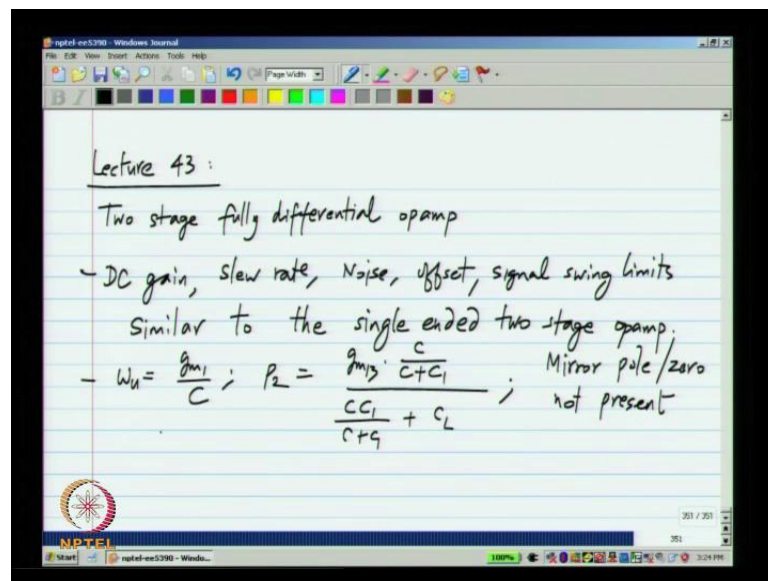 nptel-ee5390 - Windows Journal
File Edit View Insert Actions Tools Help
Page Width
B I
Lecture 43 :
Two stage fully differential opamp
- DC gain, slew rate, Noise, offset, signal swing limits
Similar to the single ended two stage opamp.
- ωu = gm1/C ; P2 = (gm13 · C/(C+C1)) / (CC1/(C+C1) + CL) ; Mirror pole/zero
not present
351 / 351
351
NPTEL
Start nptel-ee5390 - Windo... 100% 3:24 PM